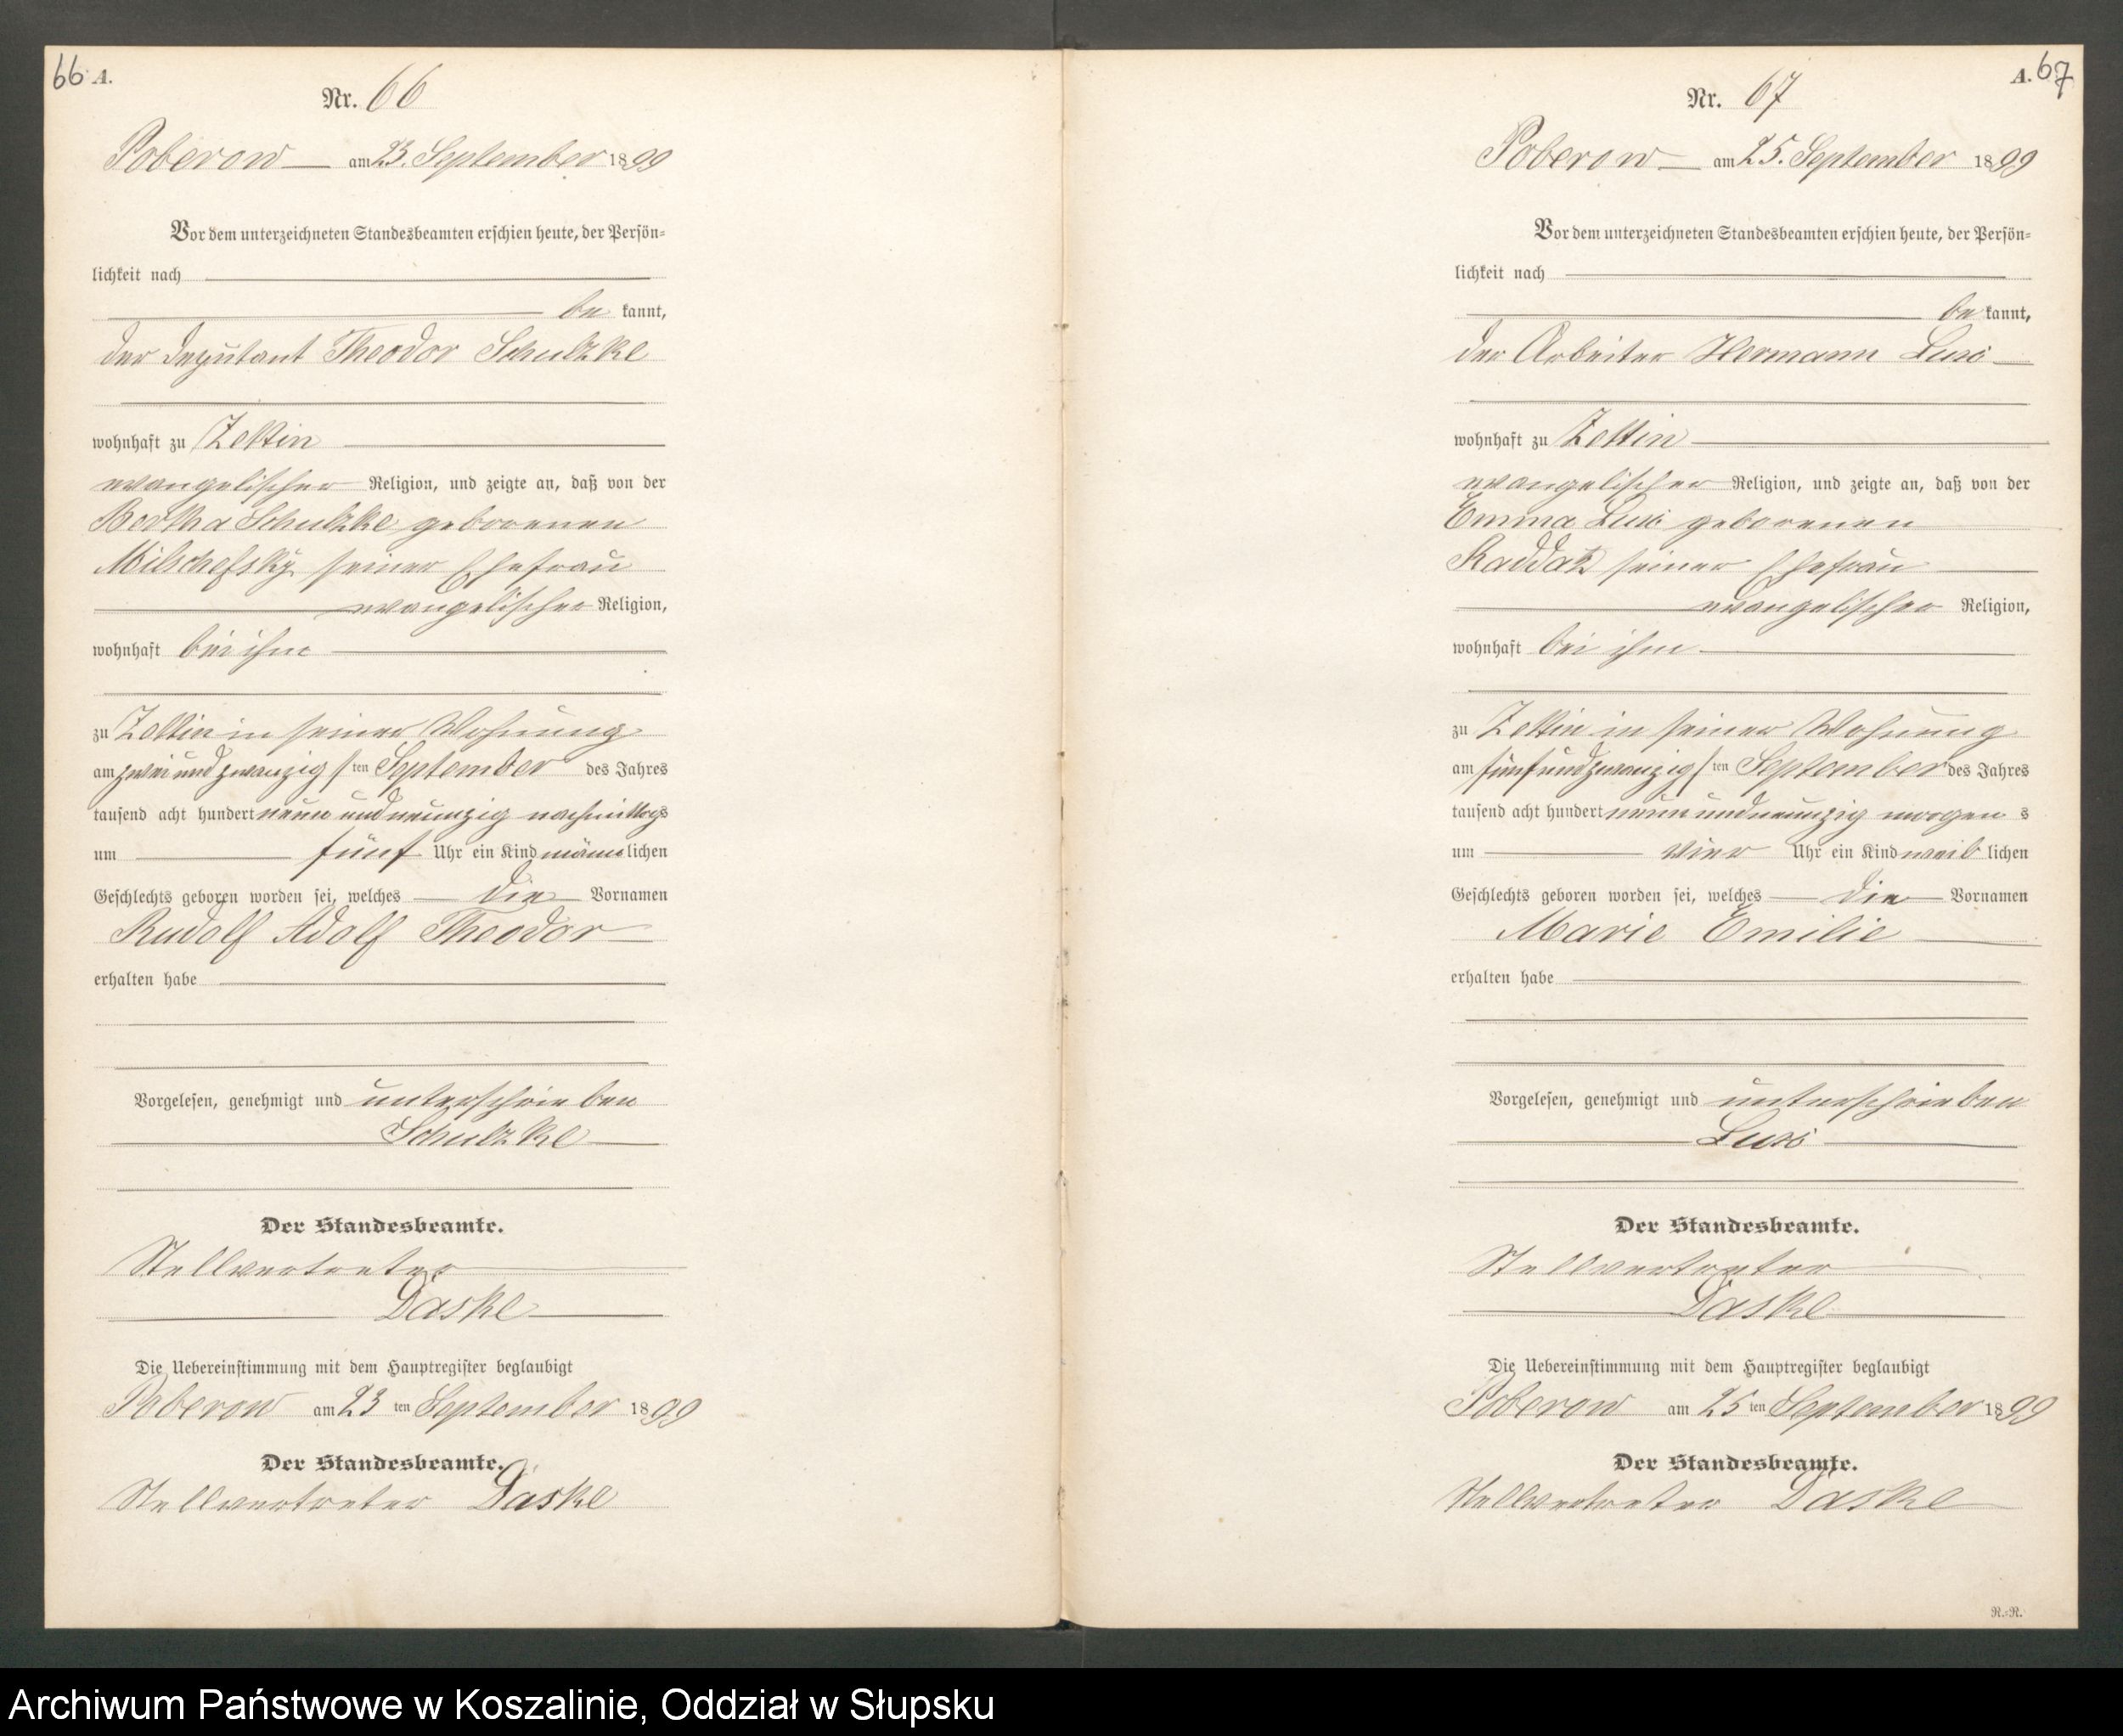 66 A.
Nr. 66
Poberow am 23. September 1899
Vor dem unterzeichneten Standesbeamten erschien heute, der Persön-
lichkeit nach
be kannt,
der Deputant Theodor Schulzke
wohnhaft zu Zettin
evangelischer Religion, und zeigte an, daß von der
Bertha Schulzke geborenen
Milschefsky seiner Ehefrau
evangelischer Religion,
wohnhaft bei ihm
zu Zettin in seiner Wohnung
am zwei und zwanzig ten September des Jahres
tausend acht hundert neun und neunzig nachmittags
um fünf Uhr ein Kind männlichen
Geschlechts geboren worden sei, welches die Vornamen
Rudolf Adolf Theodor
erhalten habe
Vorgelesen, genehmigt und unterschrieben
Schulzke
Der Standesbeamte.
Stellvertreter
Daske
Die Uebereinstimmung mit dem Hauptregister beglaubigt
Poberow am 23 ten September 1899
Der Standesbeamte.
Stellvertreter Daske
A. 67
Nr. 67
Poberow am 25. September 1899
Vor dem unterzeichneten Standesbeamten erschien heute, der Persön-
lichkeit nach
be kannt,
der Arbeiter Hermann
wohnhaft zu Zettin
evangelischer Religion, und zeigte an, daß von der
Emma geborenen
Raddatz seiner Ehefrau
evangelischer Religion,
wohnhaft bei ihm
zu Zettin in seiner Wohnung
am fünf und zwanzig ten September des Jahres
tausend acht hundert neun und neunzig morgen s
um vier Uhr ein Kind weib lichen
Geschlechts geboren worden sei, welches die Vornamen
Marie Emilie
erhalten habe
Vorgelesen, genehmigt und unterschrieben
Der Standesbeamte.
Stellvertreter
Daske
Die Uebereinstimmung mit dem Hauptregister beglaubigt
Poberow am 25 ten September 1899
Der Standesbeamte.
Stellvertreter Daske
R.-R.
Archiwum Państwowe w Koszalinie, Oddział w Słupsku